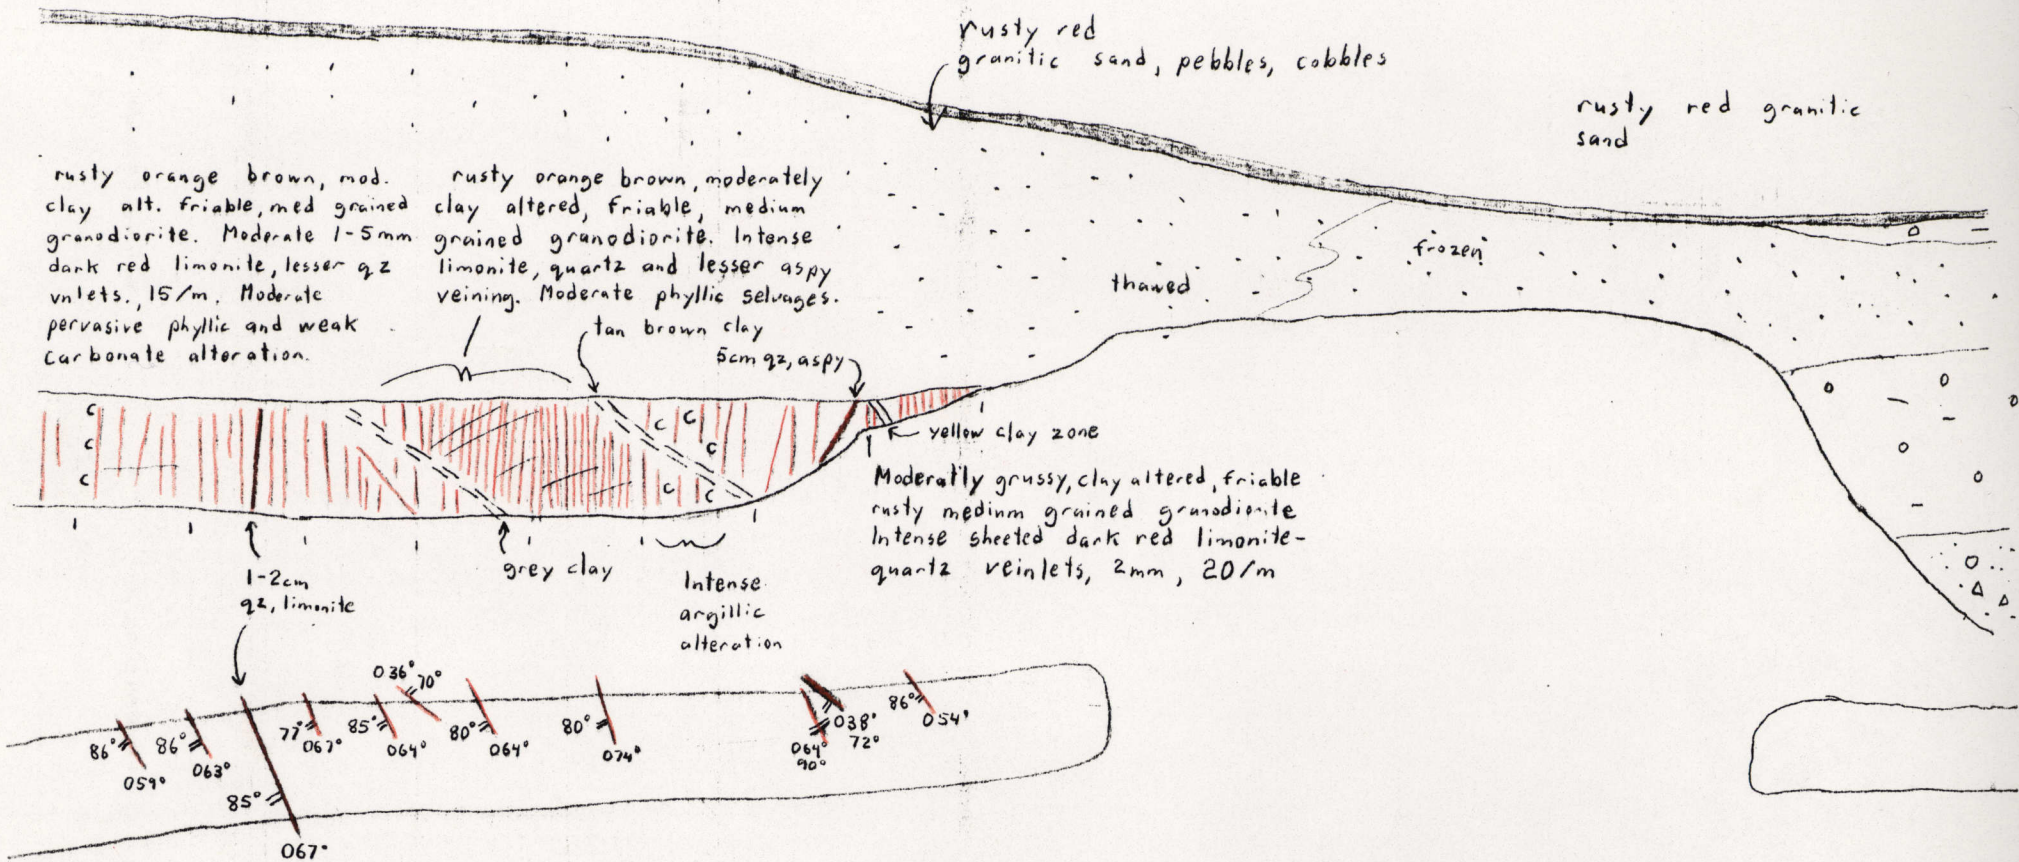 rusty red
granitic sand, pebbles, cobbles
rusty red granitic
sand
rusty orange brown, mod.
clay alt. friable, med grained
granodiorite. Moderate 1-5mm
dark red limonite, lesser qz
vnlets., 15/m. Moderate
pervasive phyllic and weak
carbonate alteration.
rusty orange brown, moderately
clay altered, friable, medium
grained granodiorite. Intense
limonite, quartz and lesser aspy
veining. Moderate phyllic selvages.
tan brown clay
5cm qz, aspy
thawed
frozen
C
C
C
C
C
C
C
C
C
yellow clay zone
Moderatly grussy, clay altered, friable
rusty medium grained granodiorite
Intense sheeted dark red limonite-
quartz veinlets, 2mm, 20/m
1-2cm
qz, limonite
grey clay
Intense
argillic
alteration
86°
059°
86°
063°
85°
067°
77°
067°
85°
064°
036°
70°
80°
064°
80°
074°
064°
90°
038°
72°
86°
054°